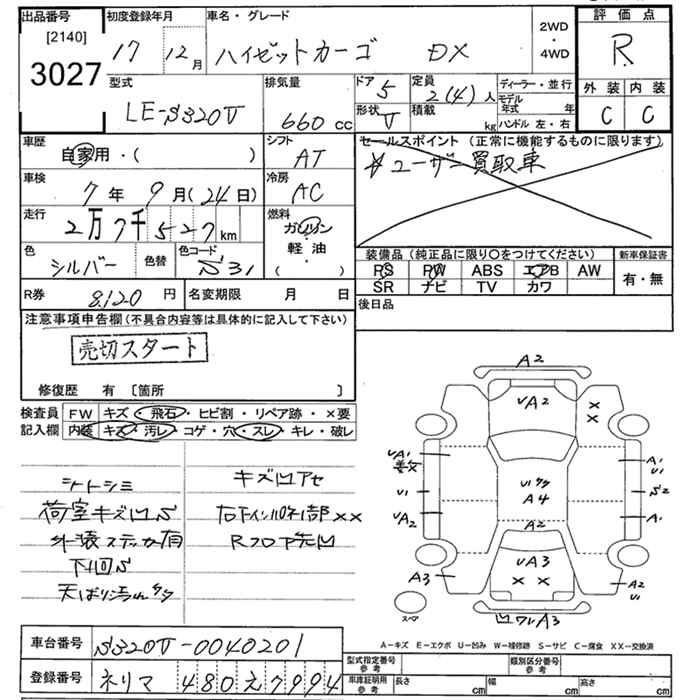 出品番号 初度登録年月 車名・グレード 2WD・4WD 評価点
[2140] 3027 17 12月 ハイゼットカーゴ DX R
型式 排気量 ドア 5 定員 2(4)人 ディーラー・並行 外装 内装
LE-S320V 660cc 形状 V 積載 kg モデル年式 年 C C
ハンドル 左・右
車歴 シフト セールスポイント (正常に機能するものに限ります)
自家用・( ) AT ☆ユーザー買取車
車検 冷房
7年 9月(24日) AC
走行 燃料
2万7千527km ガソリン
軽・油
( )
色 色替 色コード 装備品(純正品に限り○をつけてください) 新車保証書
シルバー S31 PS PW ABS エアB AW 有・無
SR ナビ TV カワ
R券 8120円 名変期限 月 日 後日品
注意事項申告欄(不具合内容等は具体的に記入して下さい)
売切スタート
修復歴 有 〔箇所 〕
検査員 FW キズ・飛石・ヒビ割・リペア跡・×要
記入欄 内装 キズ・汚レ・コゲ・穴・スレ・キレ・破レ
シートシミ キズ凹アセ
荷室キズ凹S
外装ステッカー有 Rフロア先凹
下回S
A2
VA2 × ×
VA1 A1 V1
U1 A4 S2
VA2 A2 A1
VA3 × ×
A3 A2 U1
スペア 凹ワレA3
A-キズ E-エクボ U-凹み W-補修跡 S-サビ C-腐食 XX-交換済
車台番号 S320V-0040201
型式指定番号 参考 類別区分番号 参考
登録番号 ネリマ 480え7994
車庫証明用 参考 長さ cm 幅 cm 高さ cm